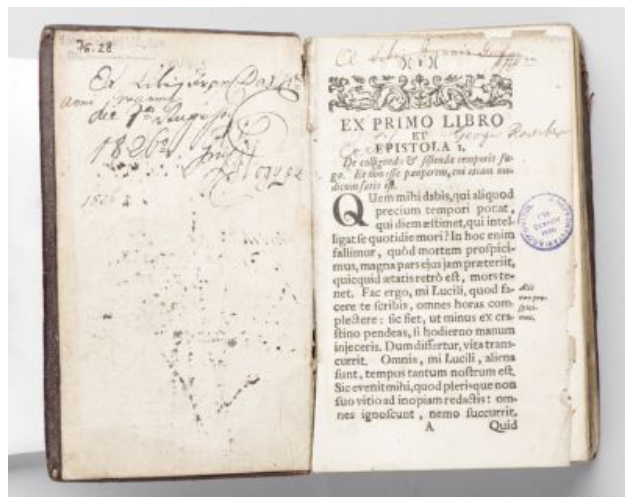 76.28
Ex
anni
die
1826
1826
Ex
( 1 )
EX PRIMO LIBRO
ET
EPISTOLA 1.
De colligenda & sistenda temporis fu-
ga. Et non esse pauperem, cui etiam mo-
dicum satis est.
QUem mihi dabis, qui aliquod
precium tempori ponat,
qui diem æstimet, qui intel-
ligat se quotidie mori? In hoc enim
fallimur, quòd mortem prospici-
mus, magna pars ejus jam præteriit,
quicquid ætatis retrò est, mors te-
net. Fac ergo, mi Lucili, quod fa-
cere te scribis, omnes horas com-
plectere: sic fiet, ut minus ex cra-
stino pendeas, si hodierno manum
injeceris. Dum differtur, vita trans-
currit. Omnia, mi Lucili, aliena
sunt, tempus tantum nostrum est.
Sic evenit mihi, quod plerisque non
suo vitio ad inopiam redactis: om-
nes ignoscunt, nemo succurrit.
A Quid